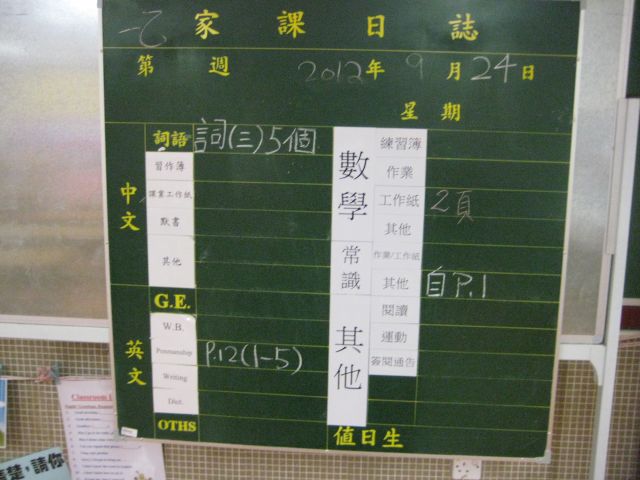 一乙 家課日誌
第 週 2012年 9月24日
星期
中文
詞語 詞(三)5個
習作簿
課業工作紙
默書
其他
G.E.
英文
W.B.
Penmanship P.12(1-5)
Writing
Dict.
OTHS
數學
練習簿
作業
工作紙 2頁
其他
常識
作業/工作紙
其他 自P.1
其他
閱讀
運動
簽閱通告
值日生
楚,請你